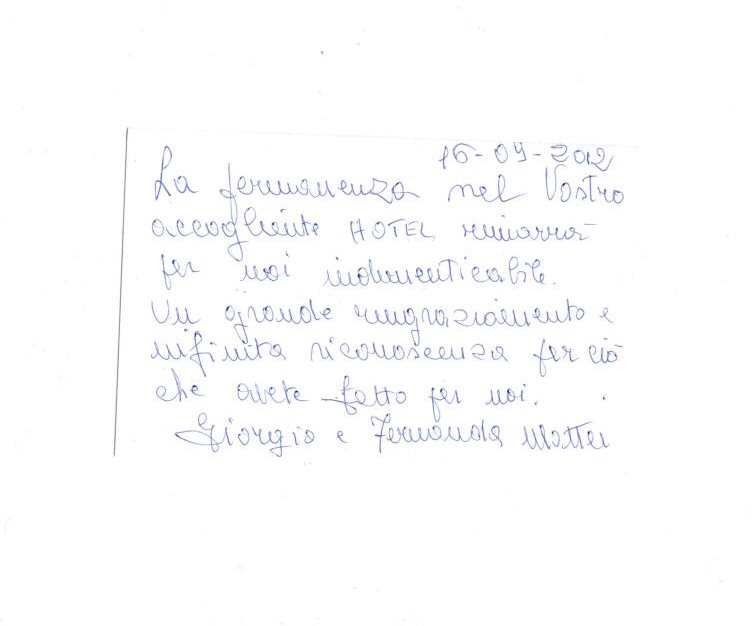 16-09-2012
La permanenza nel Vostro
accogliente HOTEL rimarrà
per noi indimenticabile.
Un grande ringraziamento e
infinita riconoscenza per ciò
che avete fatto per noi.
Giorgio e Fernanda Mattei